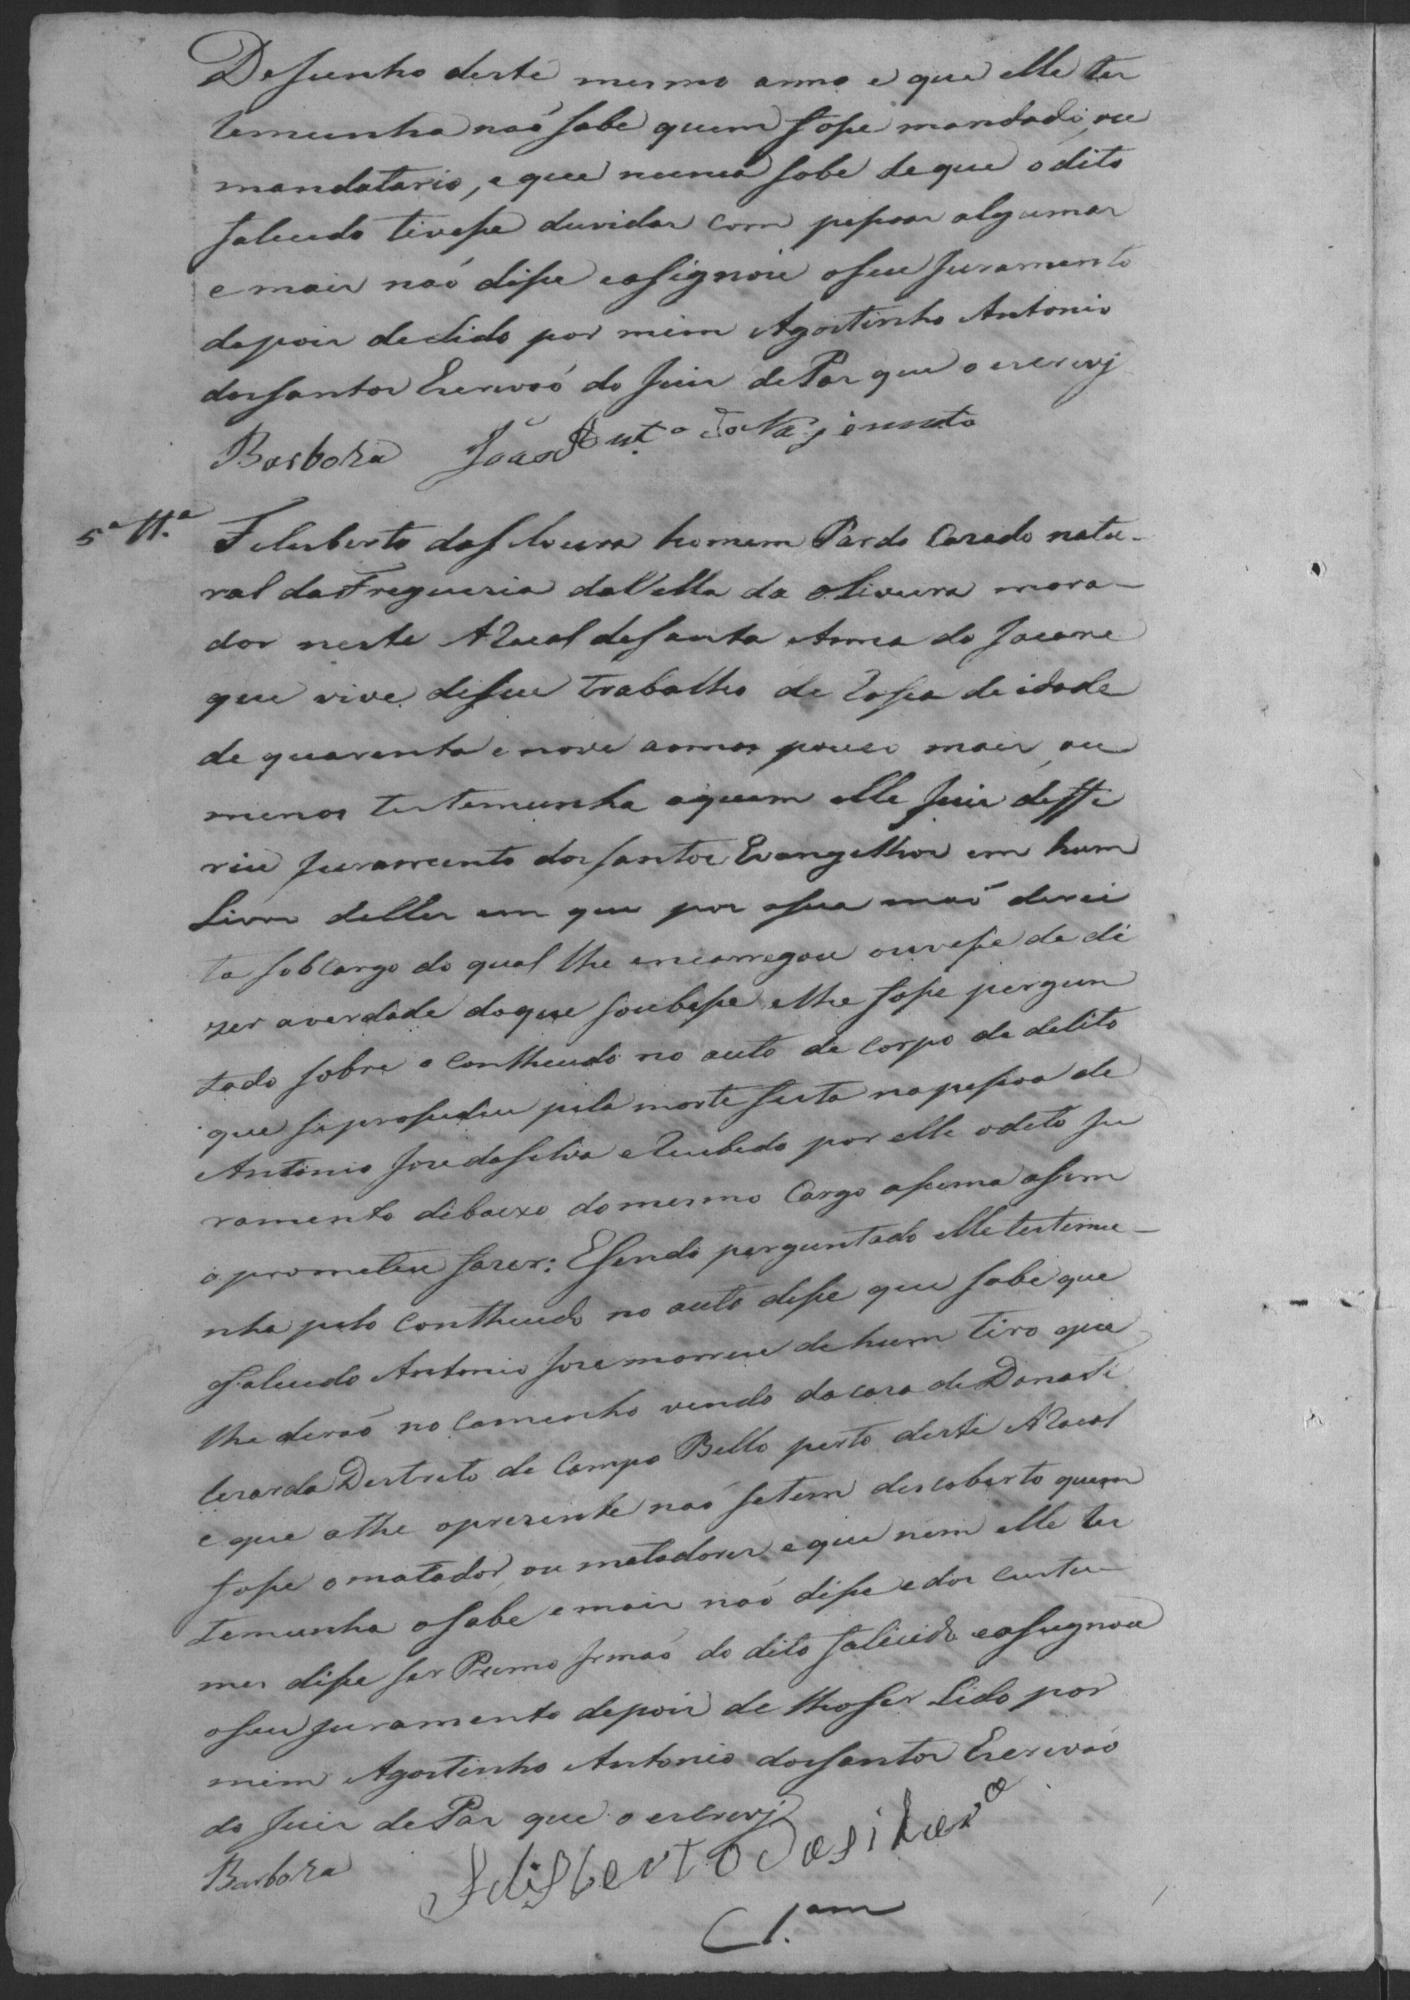 DeJunho deste mesmo anno e que elle tes
temunha naó sabe quem fosse mandado, ou
mandatario, e que nunca sobe de que o dito
falecido tivesse duvidas com pessoas algumas
e mais naó disse e asignou o seu Juramento
depois de lido por mim Agostinho Antonio
dos Santos Escrivaó do Juis de Pas que o escrevj
Barboza João Ant.º do Nascimento
5ª tt.ª
Felisberto da Silveira homem Pardo Cazado natu-
ral da Freguezia da Vella da Oliveira mora-
dor neste ARaeal de Santa Anna do Jacare
que vive de seu trabalho de Rossa de idade
de quarenta e nove annos pouco mais, ou
menos testemunha a quem elle Juis deffe
riu Juramento dos Santos Evangelhos em hum
Livro delles em que por a sua maó derei
ta sob cargo do qual lhe encarregou ouvesse de di
zer a verdade do que soubesse e lhe fosse pergun
tado sobre o contheudo no auto de corpo de delito
que se prosedeu pela morte feita na pessoa de
Antonio Joze da Silva e Recebido por elle o dito Ju
ramento debaixo do mesmo Cargo assima assim
o prometeu fazer: E sendo perguntado elle testemu-
nha pelo contheudo no auto disse que sabe que
o falecido Antonio Joze morreu de hum tiro que
lhe deraó no Caminho vindo da caza de Dona
da Destreto de Campo Bello perto deste ARaeal
e que athe o prezente naó se tem descoberto quem
fosse o matador, ou matadores e que nem elle tes
temunha o sabe e mais naó disse e dos custu-
mes disse ser Primo Jrmaó do dito falecido e assignou
o seu Juramento depois de lho ser Lido por
mim Agostinho Antonio dos Santos Escrivaó
do Juis de Pas que o escrevj
Barboza Felisberto da silvr.ª